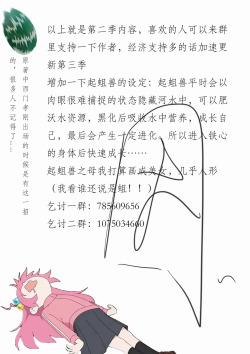 以上就是第二季内容，喜欢的人可以来群
里支持一下作者，经济支持多的话加速更
新第三季
增加一下起蛆兽的设定：起蛆兽平时会以
肉眼很难捕捉的状态隐藏河水中，可以肥
沃水资源，黑化后吸收水中营养，成长自
己，最后会产生一定进化。所以进入铁心
的身体后快速成长……
起蛆兽之母我打算画成美女，几乎人形
（我看谁还说是蛆！！）
乞讨一群：785609656
乞讨二群：1075034660
原著中西门孝刚出场的时候是有这一招
的，很多人不记得了！！